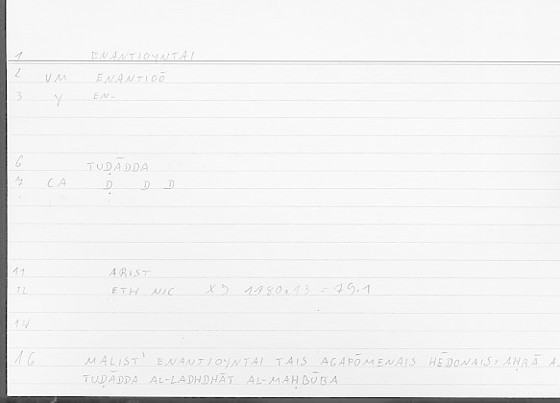 1 ENANTIOYNTAI
2 VM ENANTIOŌ
3 Y EN-
6 TUḌĀDDA
7 CA Ḍ D D
11 ARIST
12 ETH NIC
14
16 MALIST' ENANTIOYNTAI TAIS AGAPŌMENAIS HĒDONAIS, AḤRĀ
TUḌĀDDA AL-LADHDHĀT AL-MAḤBŪBA